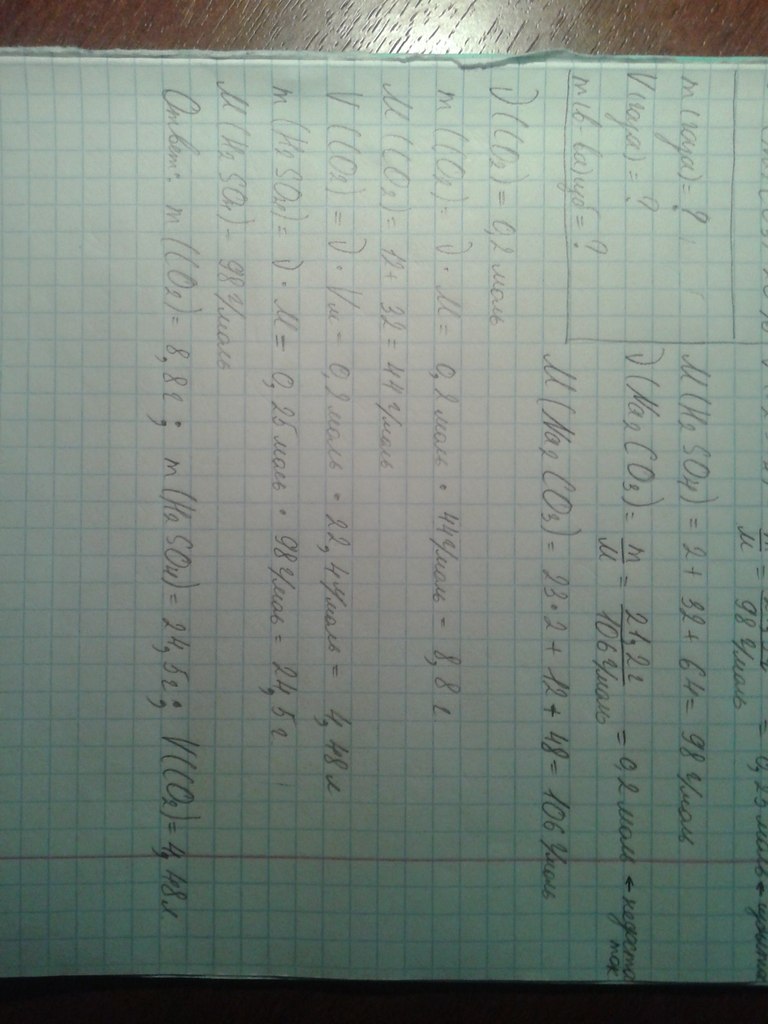 m(газа) = ?
V(газа) = ?
m(в-ва)изб = ?
m/M = 98 г/моль = 0,25 моль ←
M(H2SO4) = 2 + 32 + 64 = 98 г/моль
ν(Na2CO3) = m/M = 21,2 г/106 г/моль = 0,2 моль ← недостаток
M(Na2CO3) = 23·2 + 12 + 48 = 106 г/моль
ν(CO2) = 0,2 моль
m(CO2) = ν · M = 0,2 моль · 44 г/моль = 8,8 г
M(CO2) = 12 + 32 = 44 г/моль
V(CO2) = ν · Vм = 0,2 моль · 22,4 л/моль = 4,48 л
m(H2SO4) = ν · M = 0,25 моль · 98 г/моль = 24,5 г
M(H2SO4) - 98 г/моль
Ответ: m(CO2) = 8,8 г; m(H2SO4) = 24,5 г; V(CO2) = 4,48 л